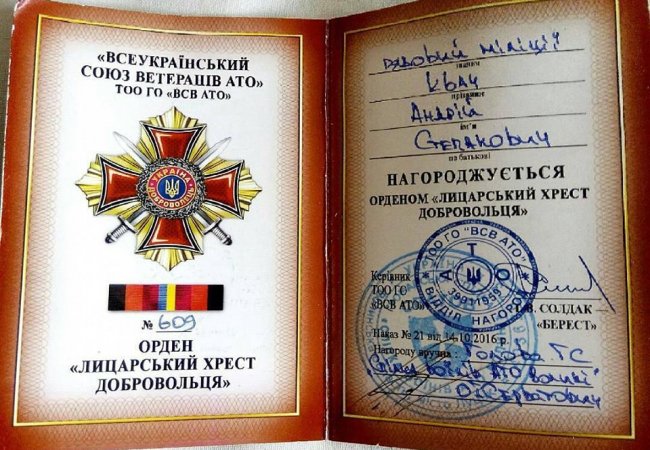 «ВСЕУКРАЇНСЬКИЙ
СОЮЗ ВЕТЕРАНІВ АТО»
ТОО ГО «ВСВ АТО»
УКРАЇНА
ДОБРОВОЛЕЦЬ
№ 609
ОРДЕН
«ЛИЦАРСЬКИЙ ХРЕСТ
ДОБРОВОЛЬЦЯ»
рядовий міліції
звання
Квач
прізвище
Андрій
ім'я
Степанович
по батькові
НАГОРОДЖУЄТЬСЯ
ОРДЕНОМ «ЛИЦАРСЬКИЙ ХРЕСТ
ДОБРОВОЛЬЦЯ»
ТОО ГО "ВСВ АТО"
АТО
39911958
ВІДДІЛ НАГОРОД
Керівник
ТОО ГО
«ВСВ АТО»
В. СОЛДАК
«БЕРЕСТ»
Наказ № 21 від 14.10.2016 р.
Нагороду вручив Голова ГС
АТО